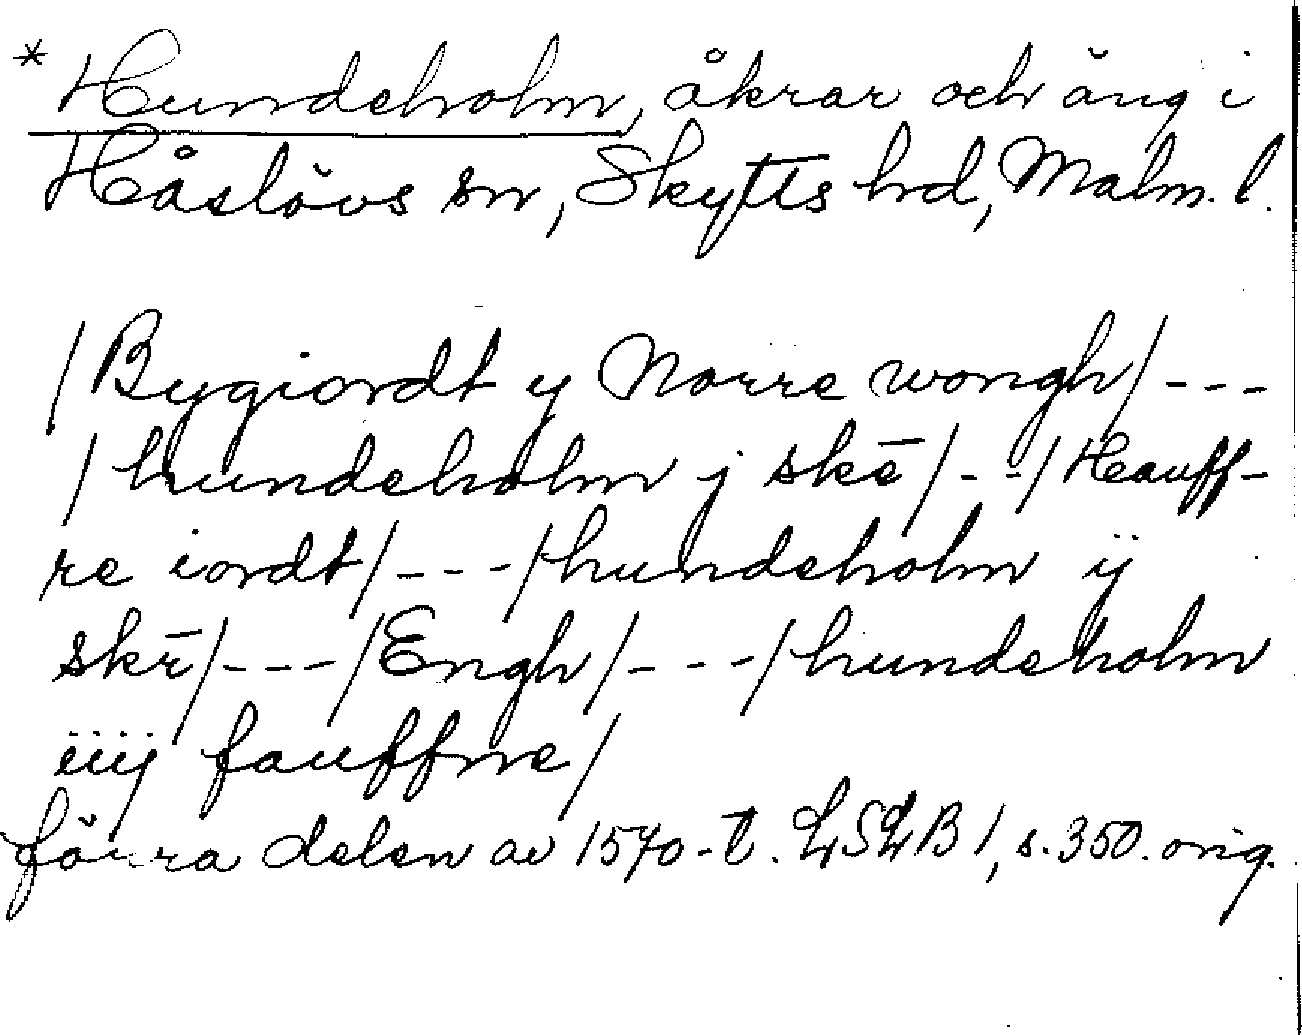 * Hundeholm, åkrar och äng i
Håslövs sn, Skytts hd, Malm. l.
/Bygiordt y Norre wongh/---
/hundeholm j skē/--/Hauff-
re iordt/---/hundeholm ÿ
skē/---/Engh/---/hundeholm
iiij fauffne/
förra delen av 1570-t. LSLB 1, s. 350. orig.